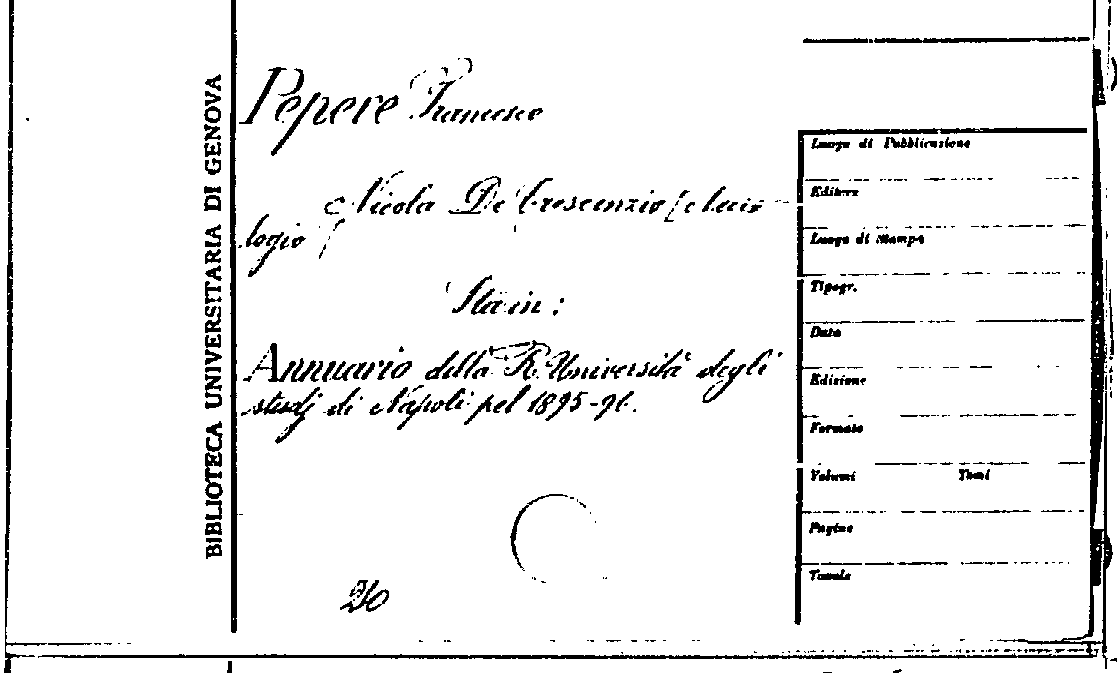 BIBLIOTECA UNIVERSITARIA DI GENOVA
Pepere Francesco
Nicola De Crescenzio (Necro-
logio)
Sta in:
Annuario della R. Università degli
studj di Napoli pel 1895-96.
Luogo di Pubblicazione
Editore
Luogo di Stampa
Tipogr.
Data
Edizione
Formato
Volumi Tomi
Pagine
Tavole